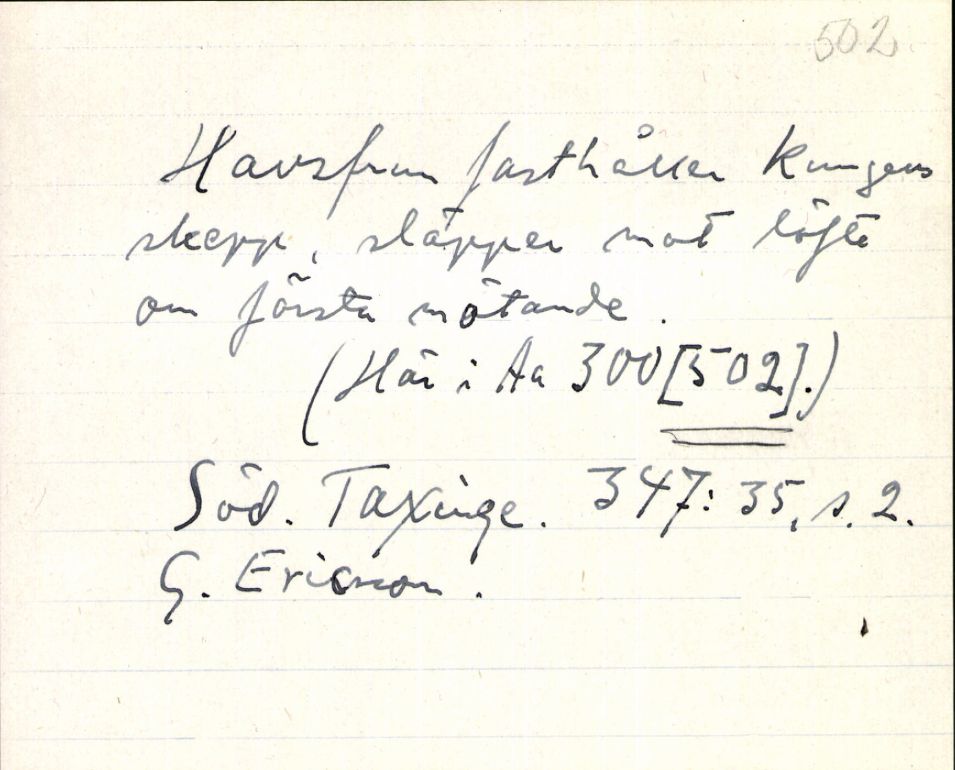 502
Havsfrun fasthåller kungens
skepp, släpper mot löfte
om första mötande.
(Här i Aa 300 [502].)
Söd. Taxinge. 347:35, s. 2.
G. Ericson.